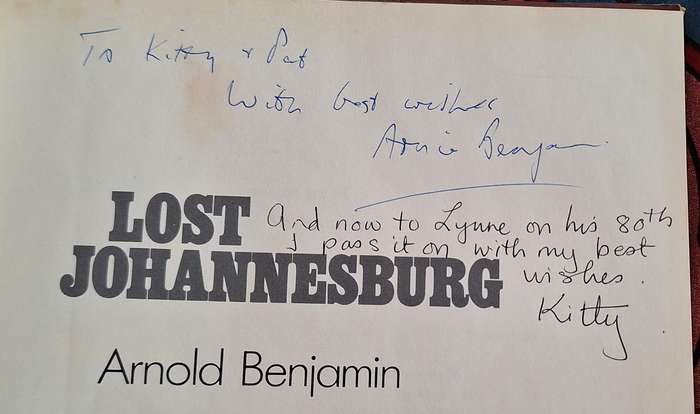 To Kitty & Pat
With best wishes
Arnie Benjamin.
LOST
And now to Lynne on his 80th
I pass it on with my best
JOHANNESBURG
wishes.
Kitty.
Arnold Benjamin